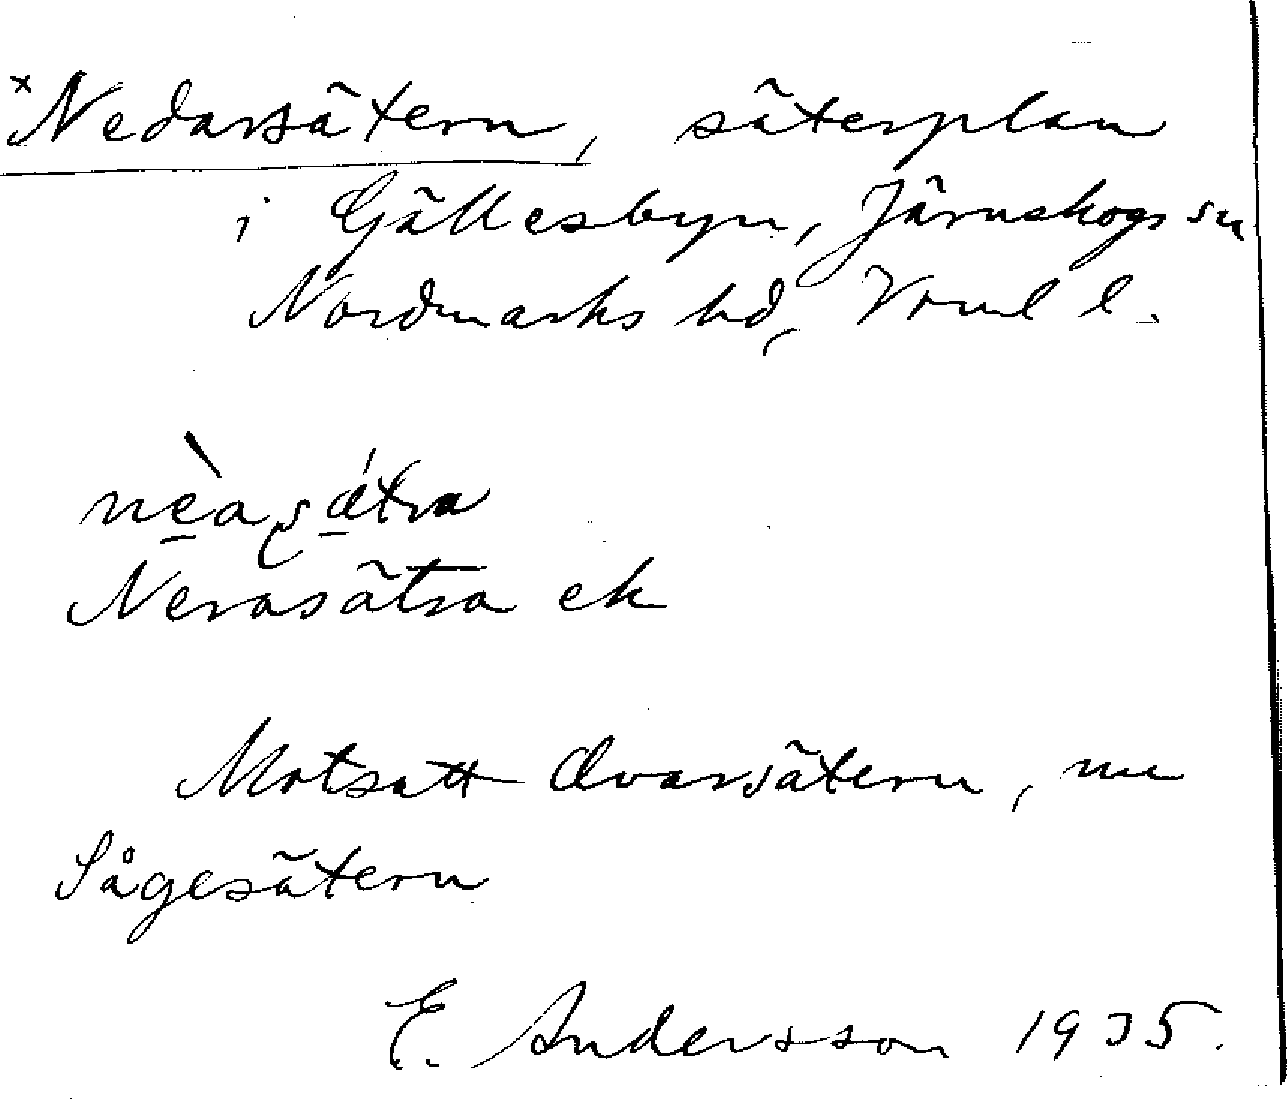 ×Nedarsätern, säterplan
i Gällesbyn, Järnskogs sn
Nordmarks hd, Vrml l.
Nerasätra ek
Motsatt Ovarsätern, nu
Sågesätern
E. Andersson 1935.